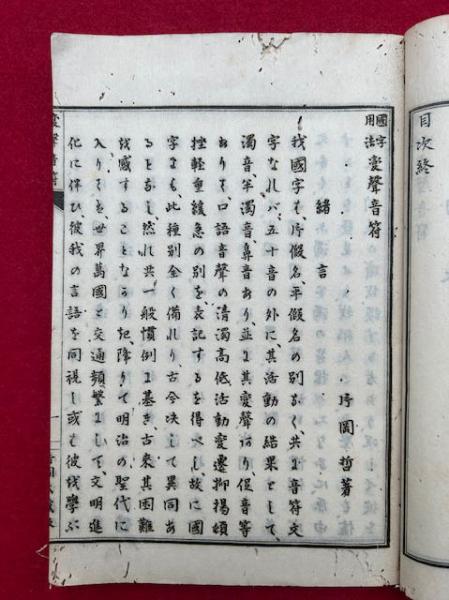 目次終
國字
用法
変聲音符
片岡哲著
緒言
我國字も片假名、平假名の別なく、共よ音符文
字なれバ、五十音の外に、其活動の結果として、
濁音、半濁音、鼻音あり、並よ其変聲さり促音等
ありて、口語音聲の清濁高低活動変遷抑揚頓
挫軽重緩急の別を、表記するを得べし、故に國
字よも、此種別全く備れり、古今决して異同あ
るとなし、然れ共一般慣例よ基き、古來其困難
を感することなかり
降りて明治の聖代に
入りてを、世界萬國と、交通頻繁よして、文明進
化に伴ひ彼我の言語を同視し或も彼を學ぶ
一